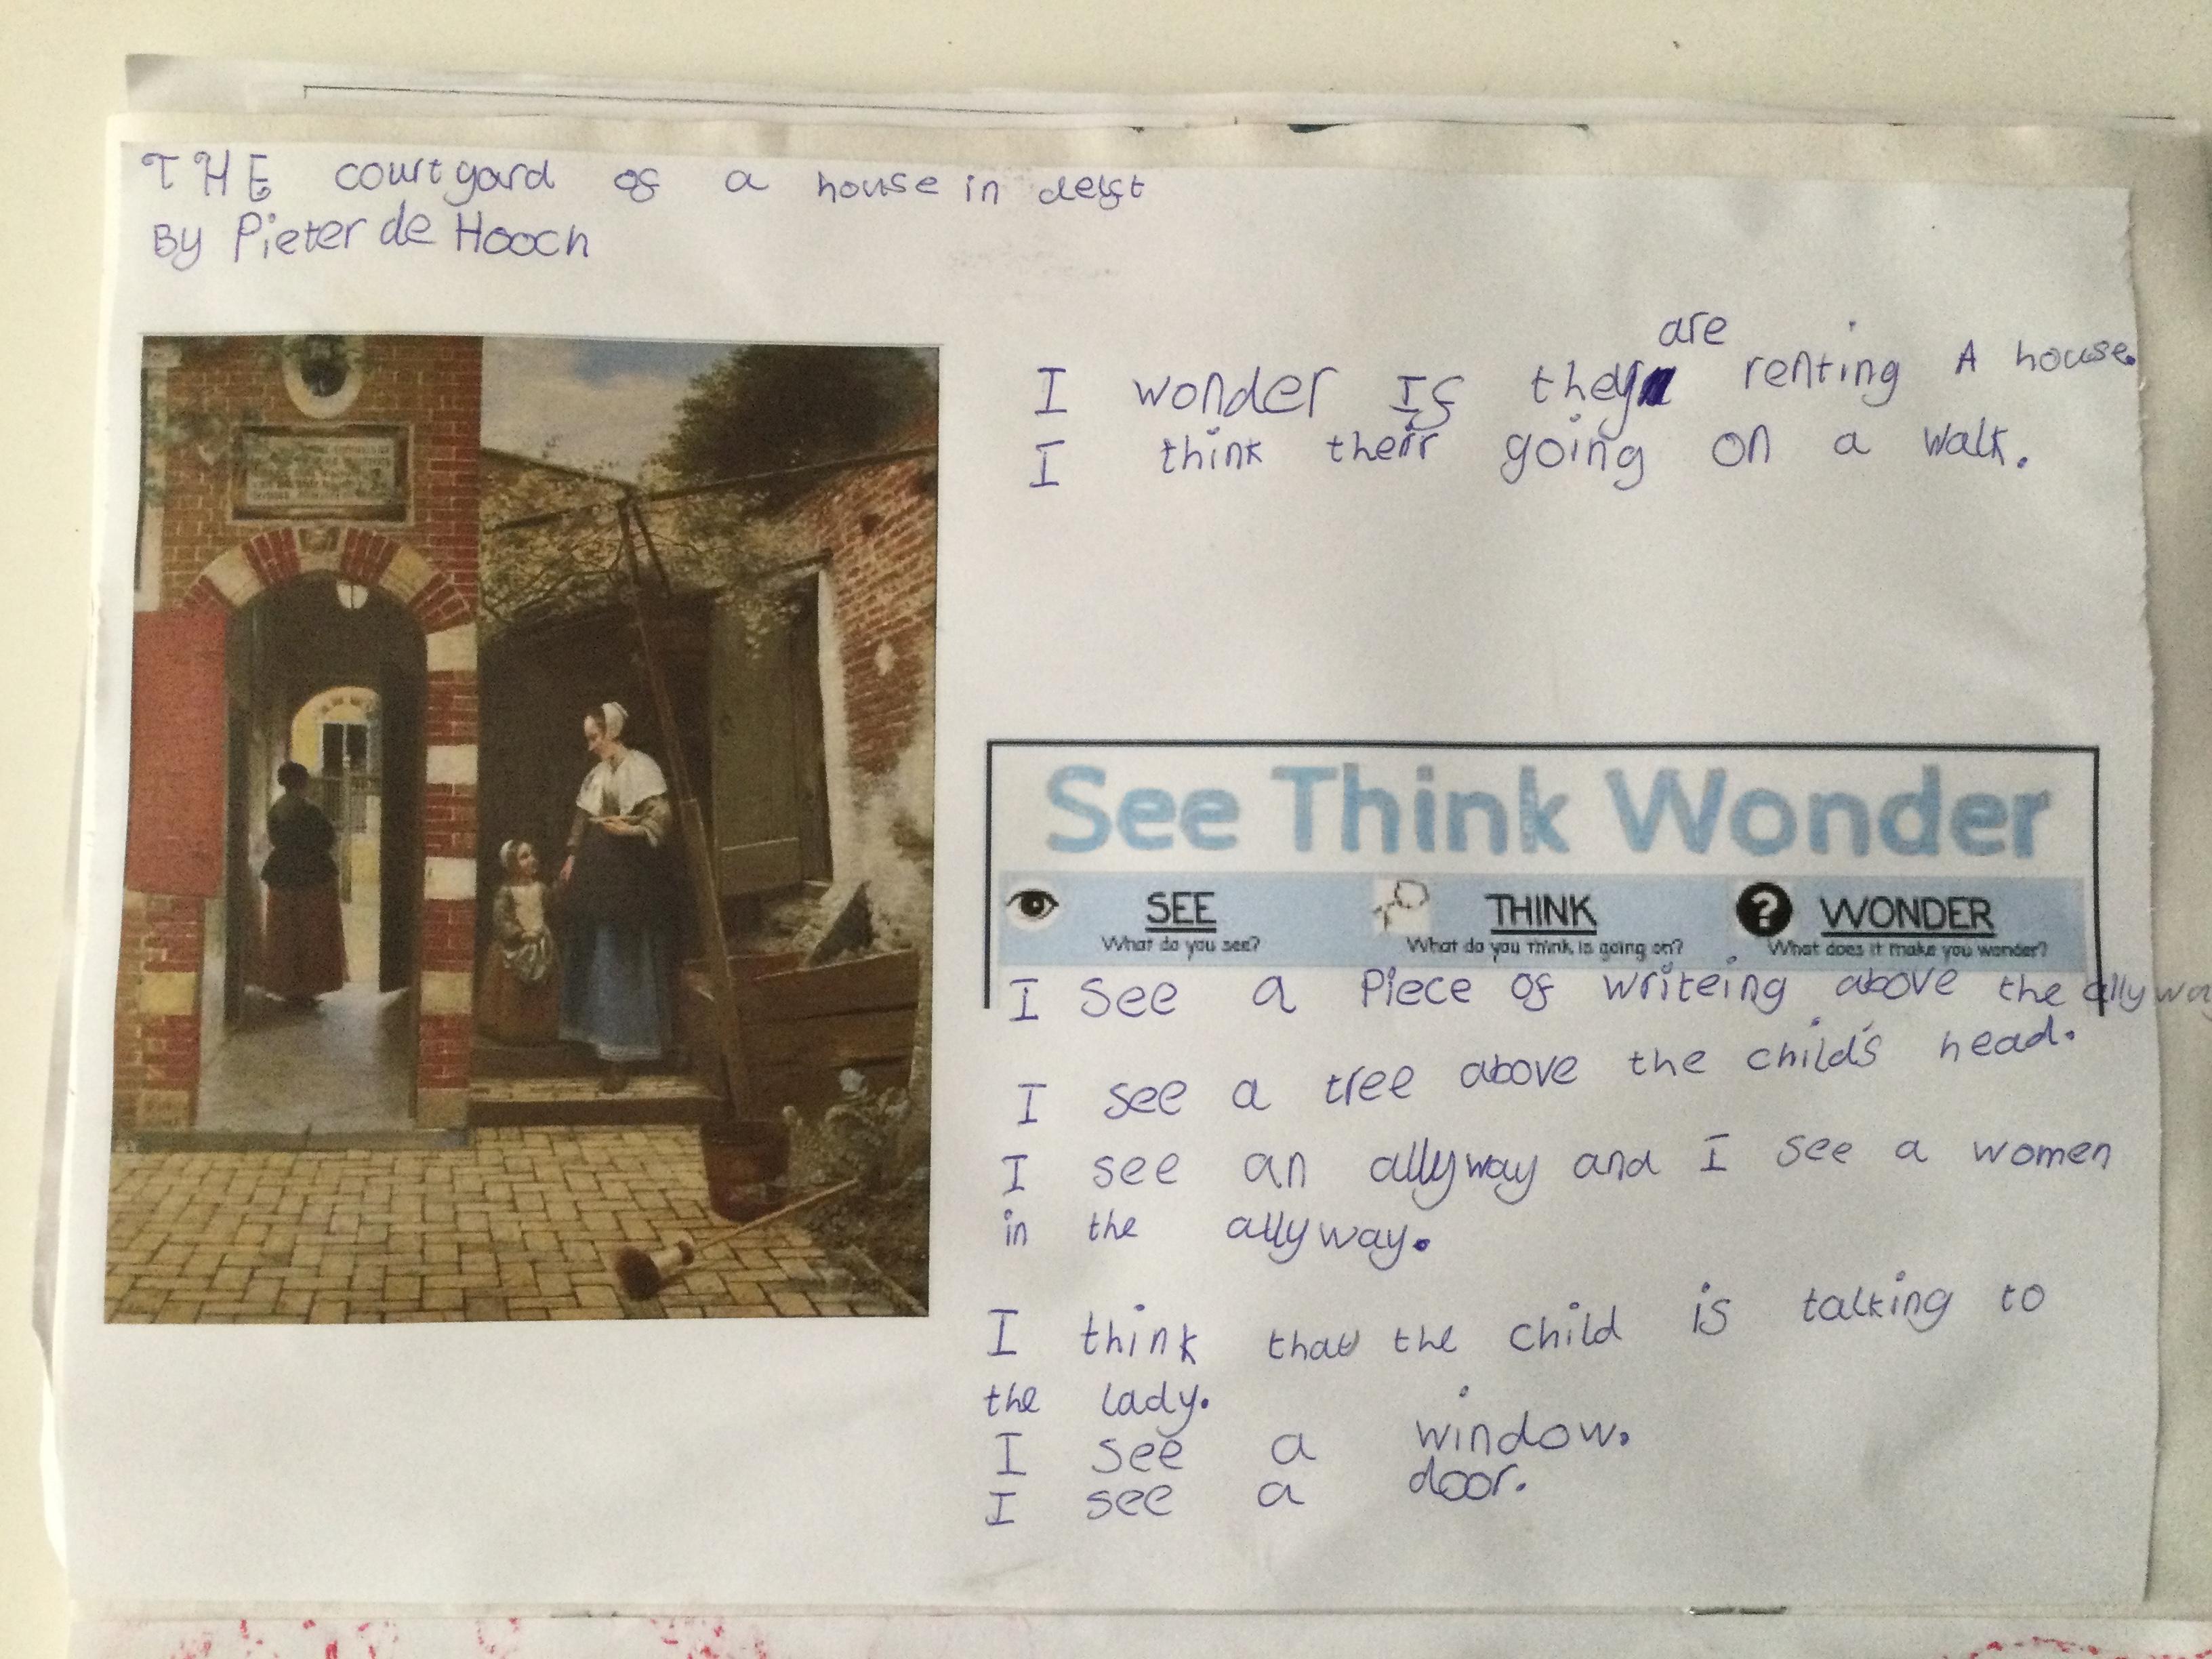 THE courtyard of a house in delft
By Pieter de Hooch
are
I wonder If they renting A house.
I think their going on a walk.
See Think Wonder
SEE THINK ? WONDER
What do you see? What do you think is going on? What does it make you wonder?
I see a Piece of writeing above the allyway
I see a tree above the child's head.
I see an allyway and I see a women
in the allyway.
I think that the child is talking to
the lady.
I see a window.
I see a door.